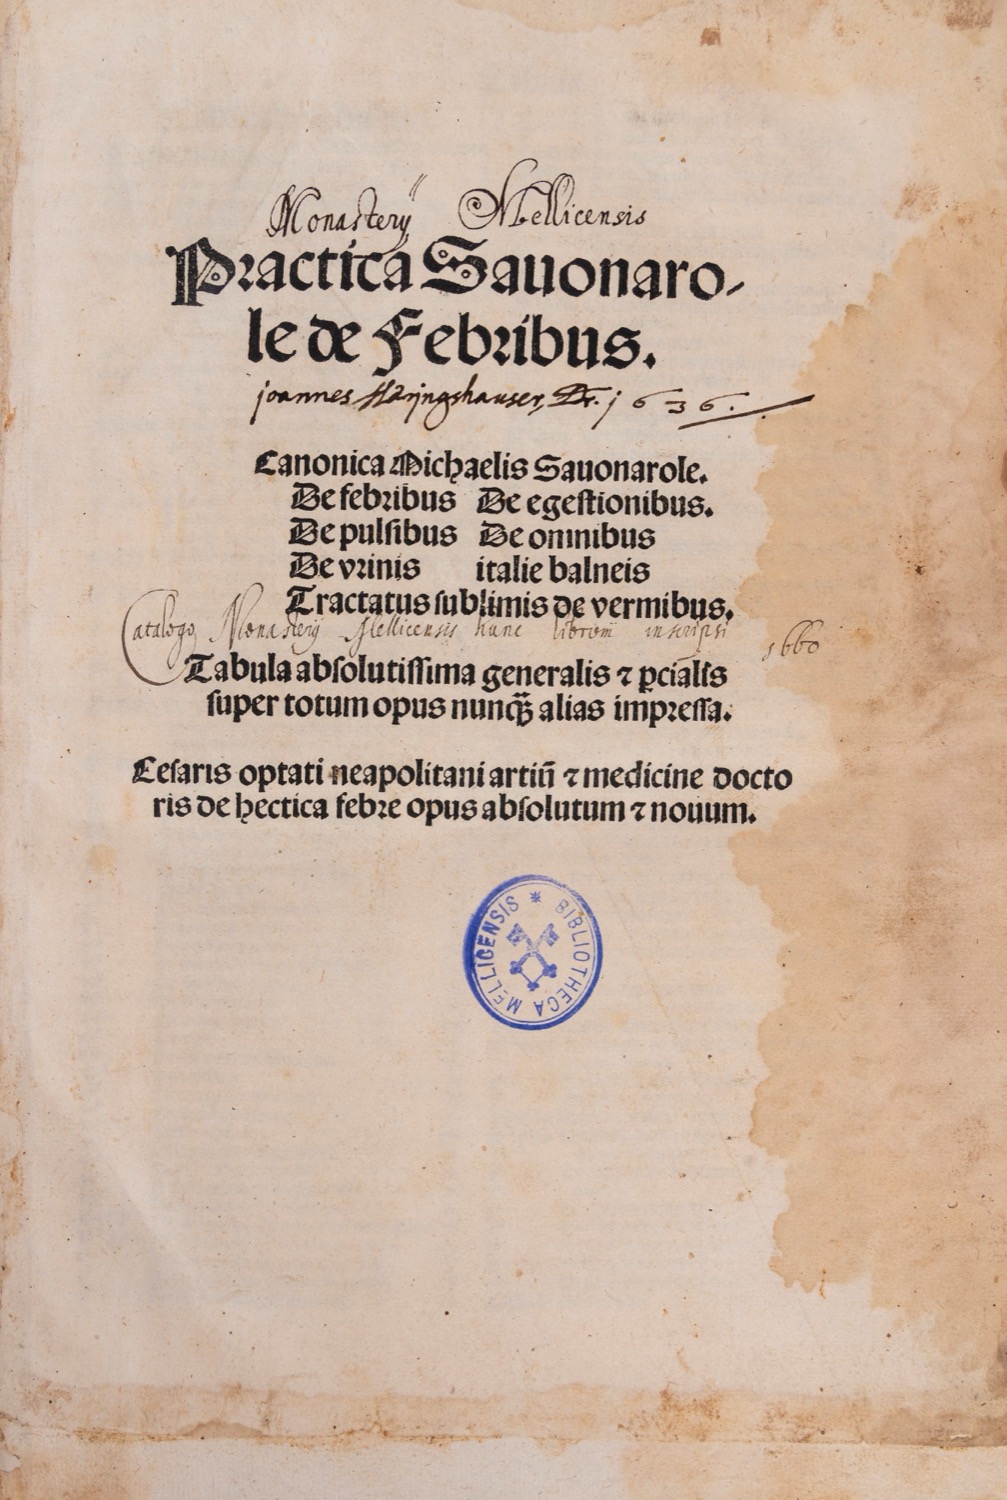 Monasterij Mellicensis
Practica Sauonaro-
le de Febribus.
joannes Häringshauser, Dr. j636.
Canonica Michaelis Sauonarole.
De febribus De egestionibus.
De pulsibus De omnibus
De vrinis italie balneis
Tractatus sublimis de vermibus.
Catalogo Monasterij Mellicensis hunc librum inscripsi 1660
Tabula absolutissima generalis ⁊ ꝑciaĺis
super totum opus nunqͣ̃ alias impressa.
Cesaris optati neapolitani artiũ ⁊ medicine docto
ris de hectica febre opus absolutum ⁊ nouum.
BIBLIOTHECA MELLICENSIS *